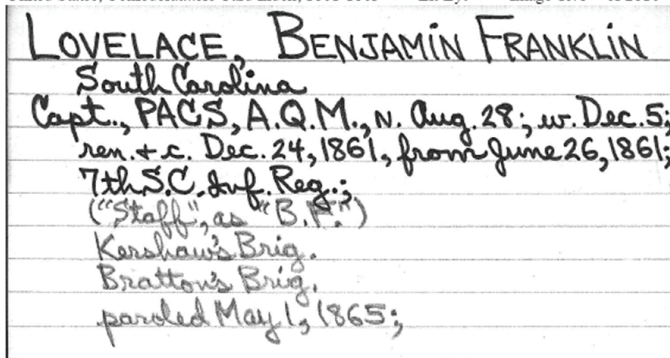 LOVELACE, BENJAMIN FRANKLIN
South Carolina
Capt., PACS, A.Q.M., N. Aug. 28; w. Dec. 5;
ren. + c. Dec. 24, 1861, from June 26, 1861;
7th S.C. Inf. Reg.;
("Staff", as "B.F.")
Kershaw's Brig.
Bratton's Brig.
paroled May 1, 1865;